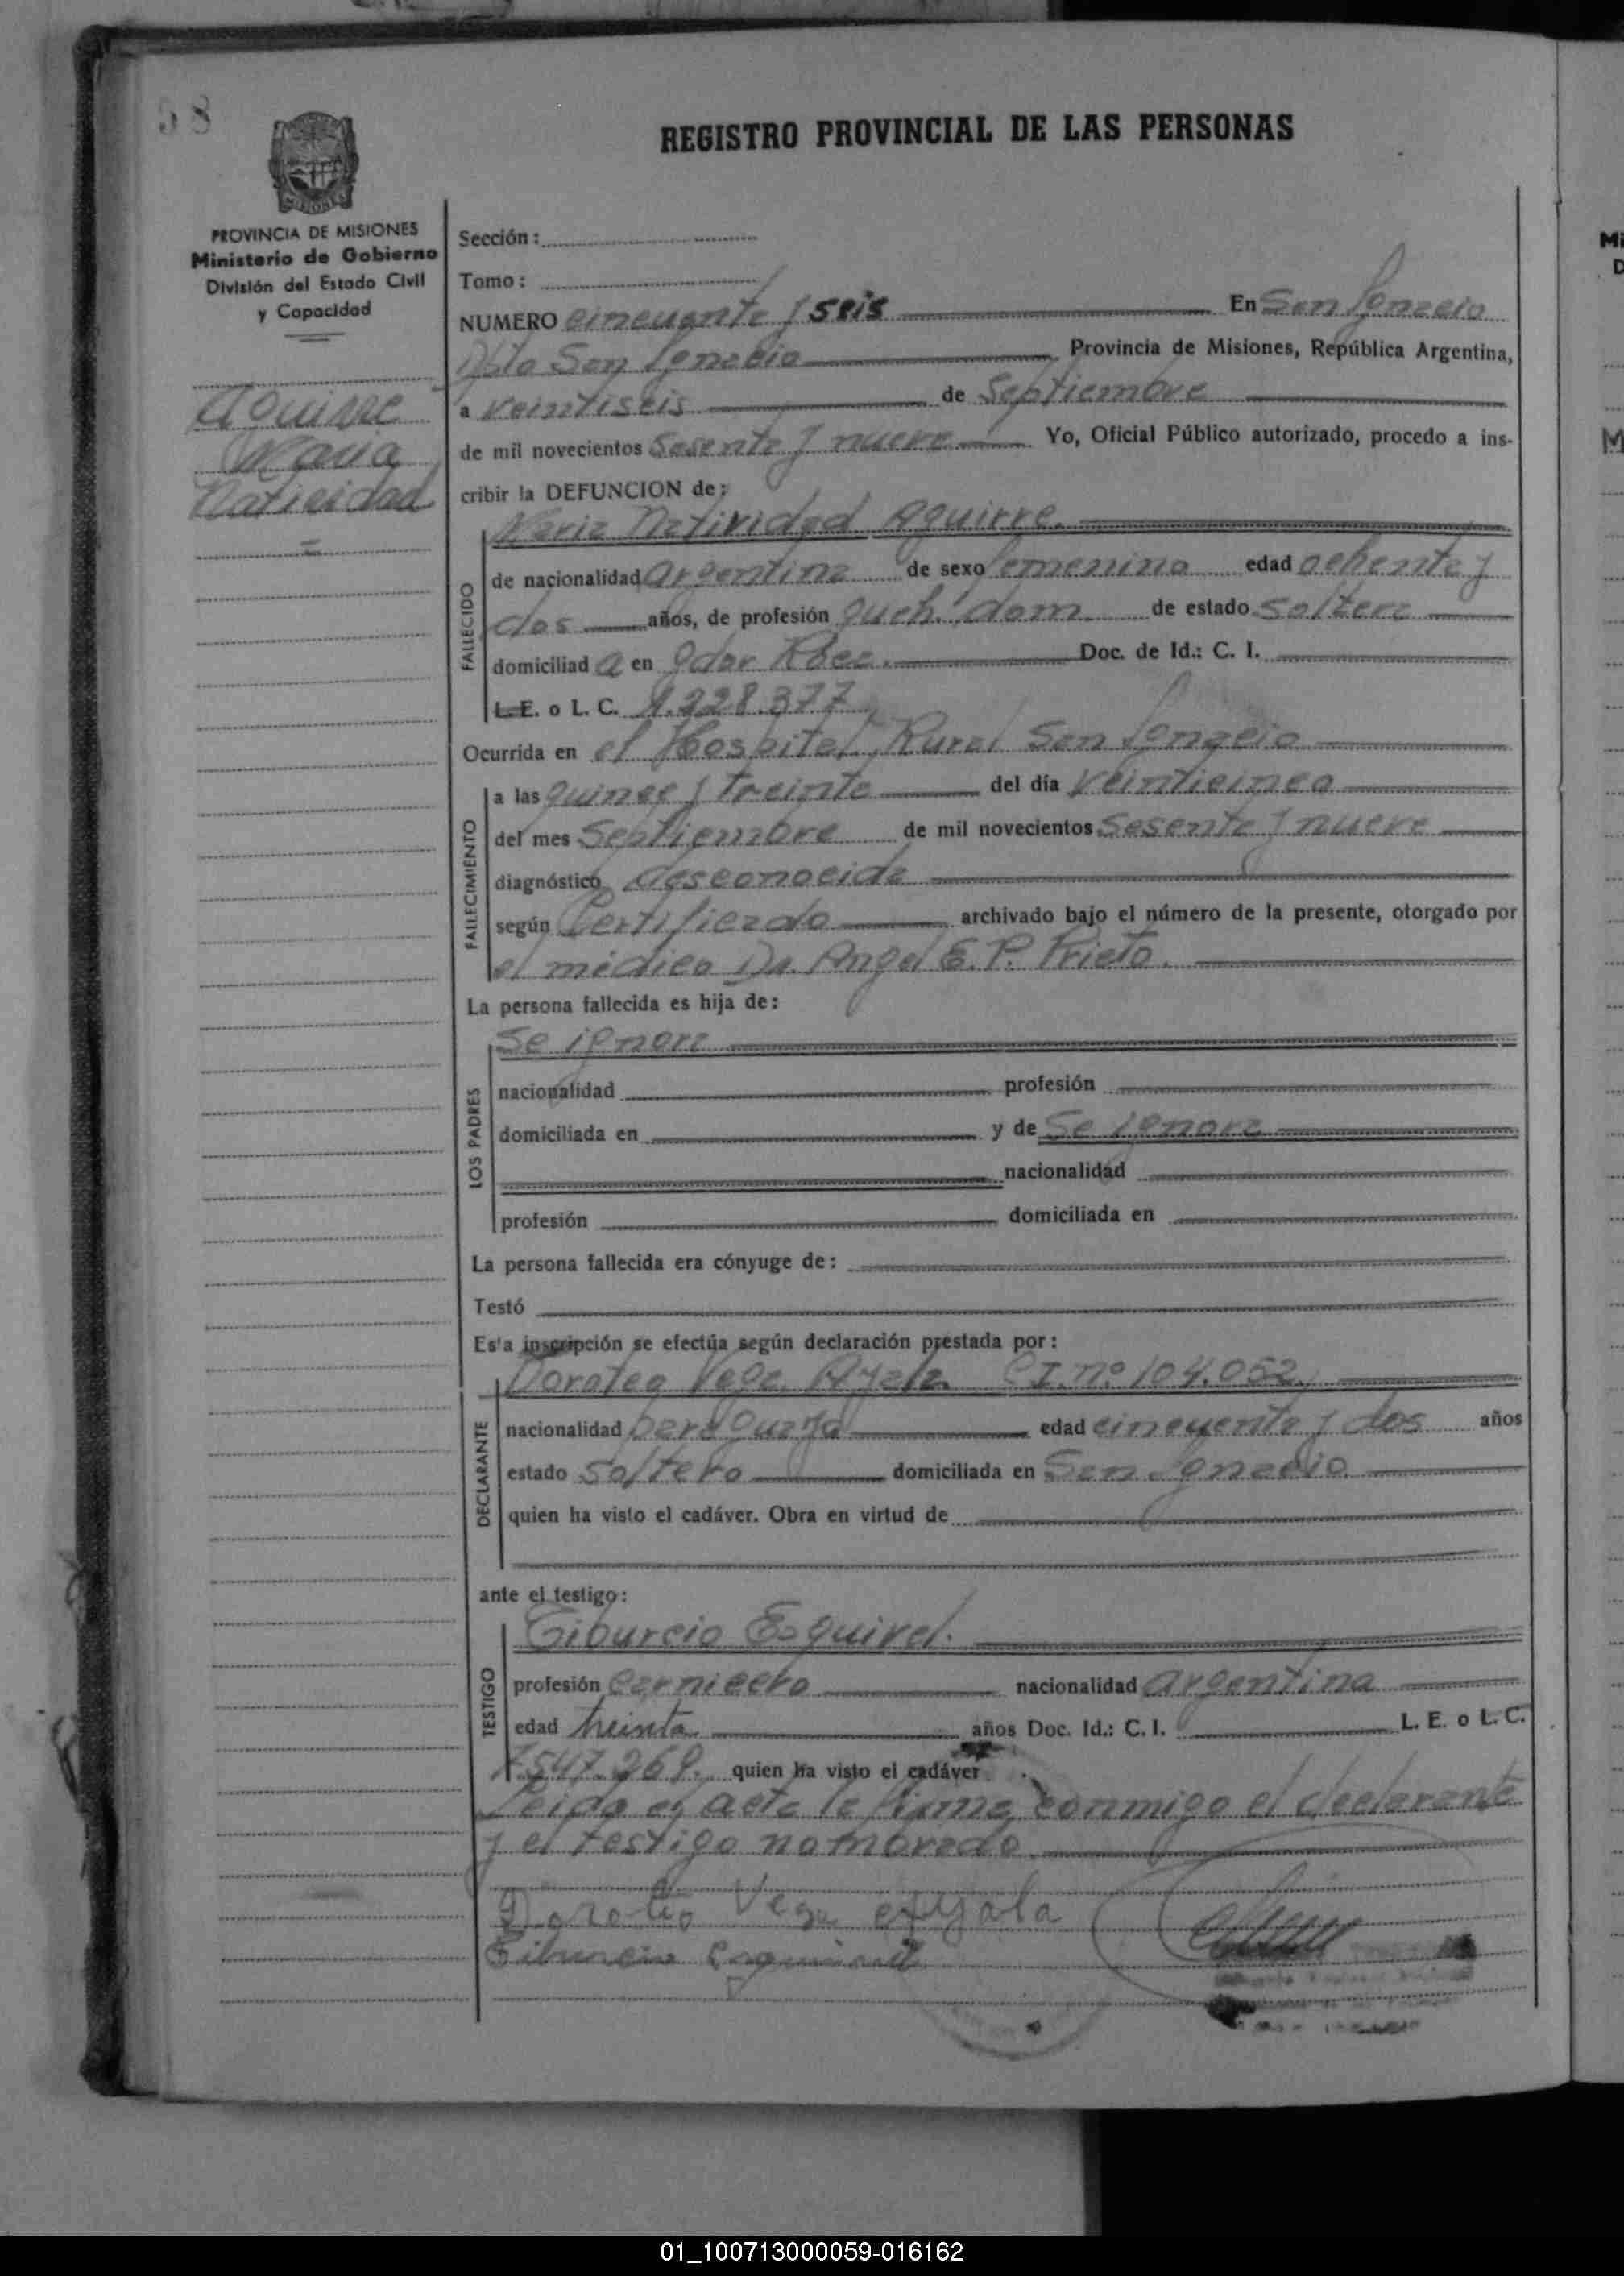 58
REGISTRO PROVINCIAL DE LAS PERSONAS
MISIONES
PROVINCIA DE MISIONES
Ministerio de Gobierno
División del Estado Civil
y Capacidad
Aguirre
Maria
Natividad
Sección:
Tomo:
NUMERO cincuenta y seis En San Ignacio
Dpto San Ignacio Provincia de Misiones, República Argentina,
a veintiseis de Septiembre
de mil novecientos sesenta y nueve Yo, Oficial Público autorizado, procedo a ins-
cribir la DEFUNCION de:
FALLECIDO
Maria Natividad Aguirre.
de nacionalidad argentina de sexo femenino edad ochenta y
dos años, de profesión queh. dom. de estado soltera
domiciliad a en Doc. de Id.: C. I.
L.E. o L. C. 1.228.377
Ocurrida en el Hospital Rural San Ignacio
FALLECIMIENTO
a las quince y treinta del día veinticinco
del mes Septiembre de mil novecientos sesenta y nueve
diagnóstico desconocida
según Certificado archivado bajo el número de la presente, otorgado por
el médico Dr. Angel E. P. Prieto.
La persona fallecida es hija de:
LOS PADRES
Se ignora
nacionalidad profesión
domiciliada en y de Se ignora
nacionalidad
profesión domiciliada en
La persona fallecida era cónyuge de:
Testó
Es'a inscripción se efectúa según declaración prestada por:
DECLARANTE
Doroteo Vega Ayala C.I. nº 104.052.
nacionalidad paraguaya edad cincuenta y dos años
estado soltero domiciliada en San Ignacio
quien ha visto el cadáver. Obra en virtud de
ante el testigo:
TESTIGO
Tiburcio Esquivel.
profesión carnicero nacionalidad argentina
edad treinta años Doc. Id.: C. I. L. E. o L. C.
7.547.269. quien ha visto el cadáver
Leida el acta la firma conmigo el declarante
y el testigo nombrado.
Doroteo Vega Ayala
Tiburcio Esquivel
01_100713000059-016162